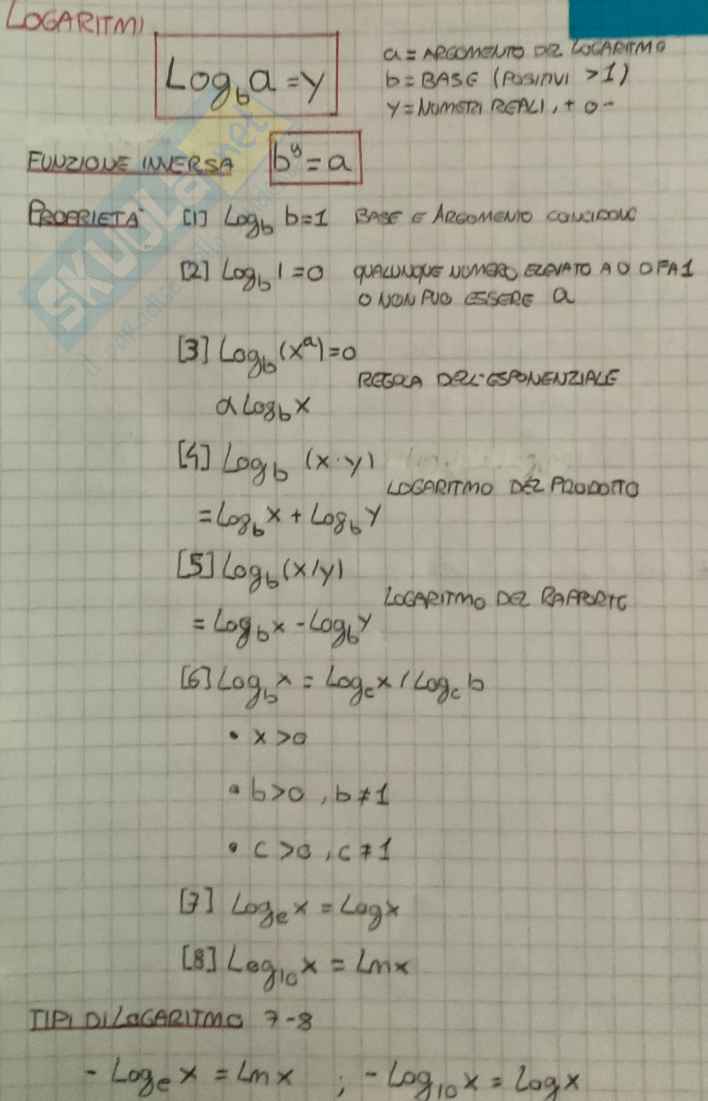 LOGARITMI
Log_b a = y
a = ARGOMENTO DEL LOGARITMO
b = BASE (POSITIVI > 1)
y = NUMERI REALI, + O -
FUNZIONE INVERSA b^y = a
PROPRIETÀ [1] Log_b b = 1 BASE E ARGOMENTO COINCIDONO
[2] Log_b 1 = 0 QUALUNQUE NUMERO ELEVATO A 0 FA 1
0 NON PUO ESSERE a
[3] Log_b (x^a) = 0
REGOLA DELL'ESPONENZIALE
a Log_b x
[4] Log_b (x · y)
LOGARITMO DEL PRODOTTO
= Log_b x + Log_b y
[5] Log_b (x/y)
LOGARITMO DEL RAPPORTO
= Log_b x - Log_b y
[6] Log_b x = Log_c x / Log_c b
• x > 0
• b > 0, b ≠ 1
• c > 0, c ≠ 1
[7] Log_e x = Log x
[8] Log_10 x = Ln x
TIPI DI LOGARITMO 7-8
- Log_e x = Ln x ; - Log_10 x = Log x
SKUOLA.net